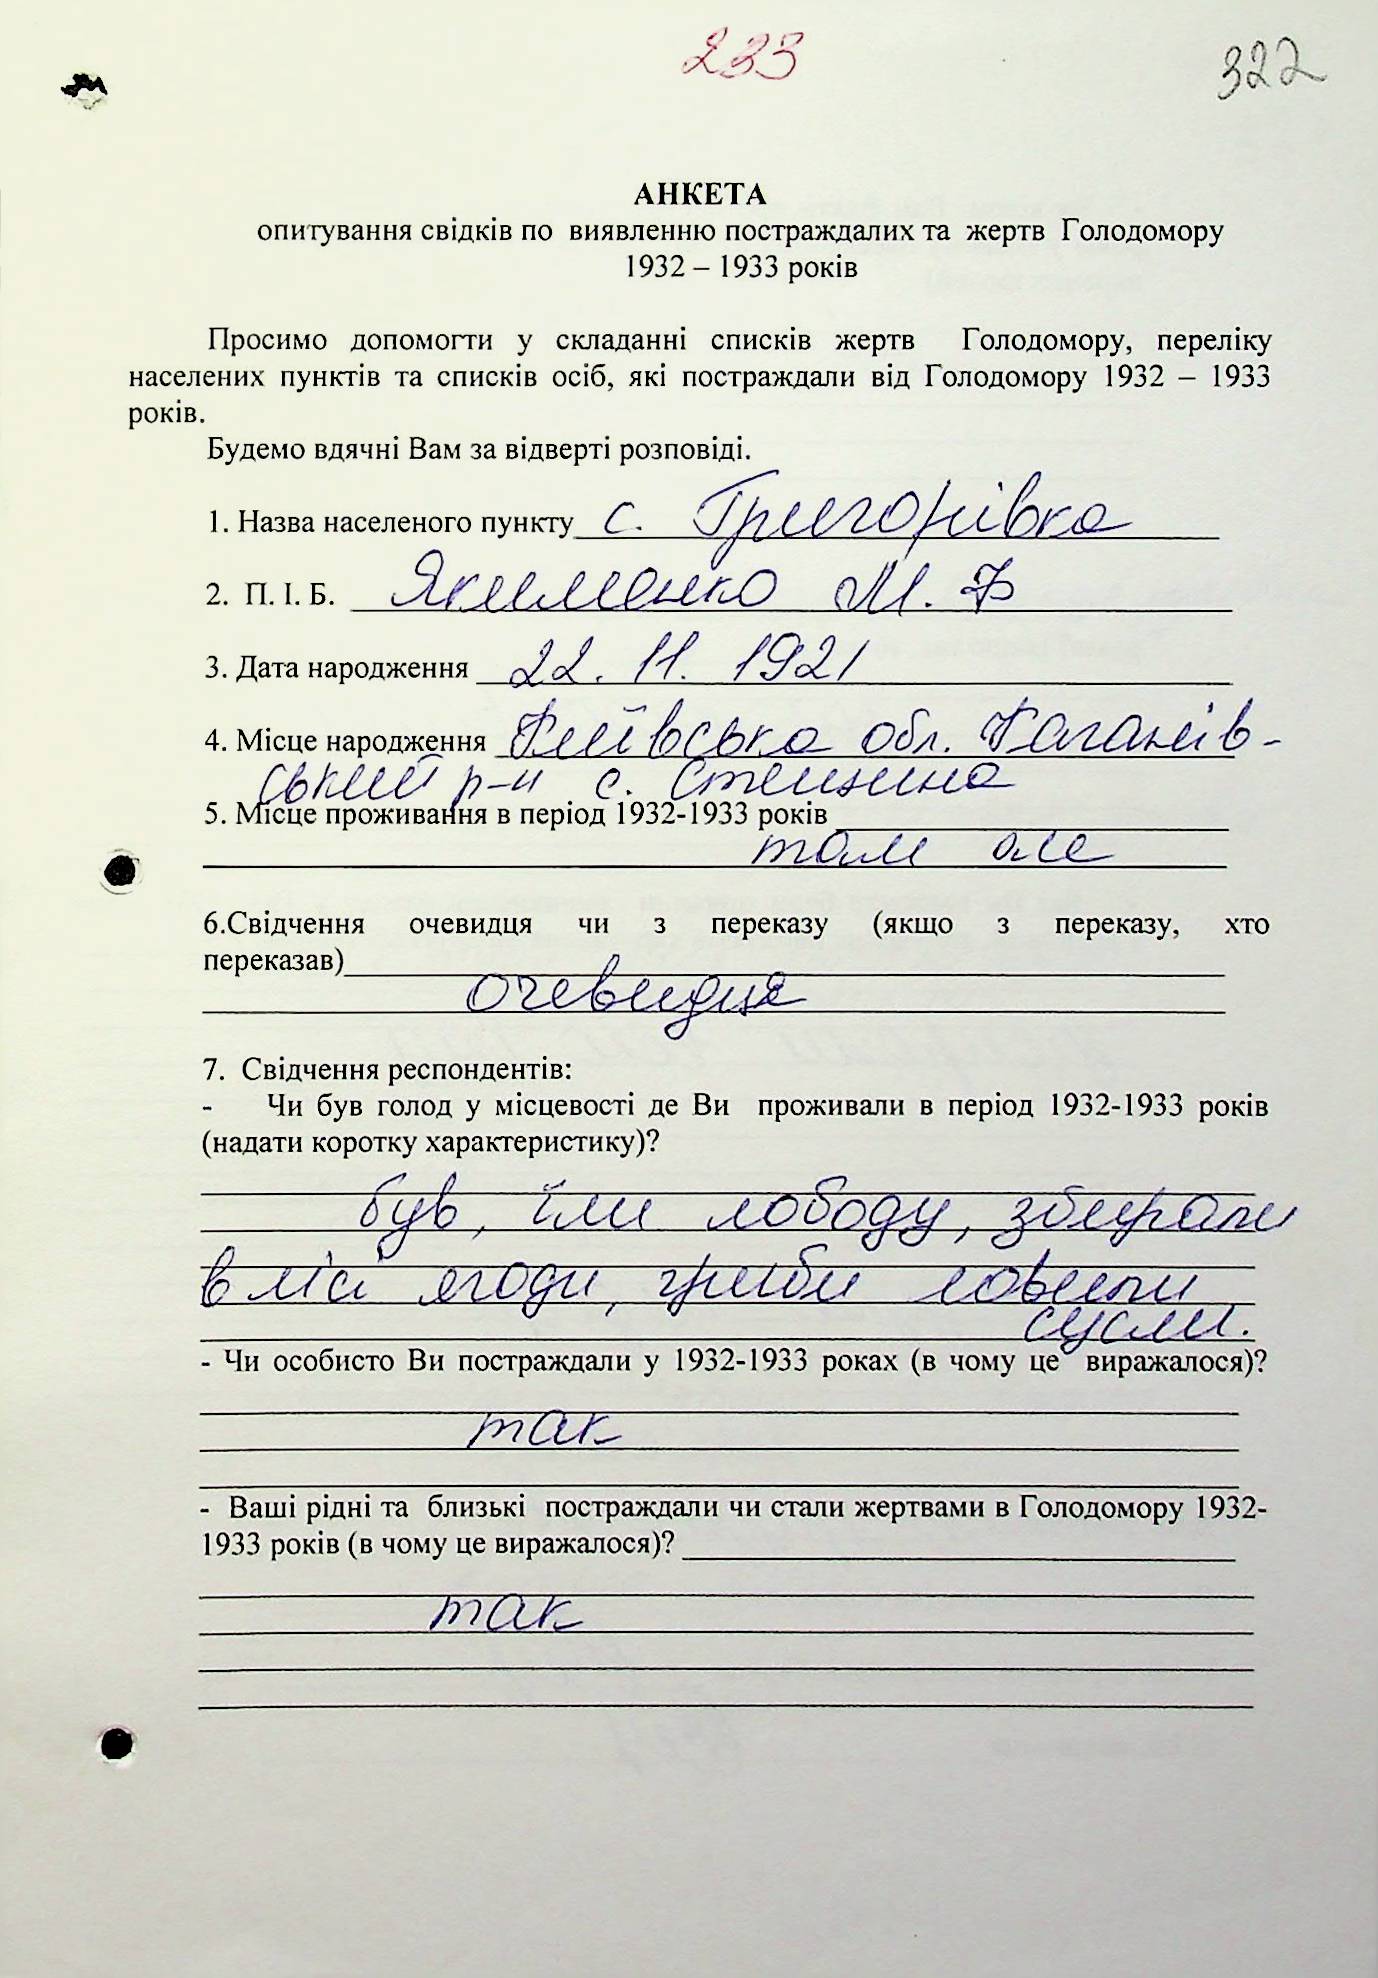 233
322
АНКЕТА
опитування свідків по виявленню постраждалих та жертв Голодомору
1932 – 1933 років
Просимо допомогти у складанні списків жертв Голодомору, переліку
населених пунктів та списків осіб, які постраждали від Голодомору 1932 – 1933
років.
Будемо вдячні Вам за відверті розповіді.
1. Назва населеного пункту с. Григорівка
2. П. І. Б. Якименко М. Ф
3. Дата народження 22. 11. 1921
4. Місце народження Київська обл. Каганів-
ський р-н с. Стещина
5. Місце проживання в період 1932-1933 років
там же
6.Свідчення очевидця чи з переказу (якщо з переказу, хто
переказав)
очевидця
7. Свідчення респондентів:
- Чи був голод у місцевості де Ви проживали в період 1932-1933 років
(надати коротку характеристику)?
був, їли лободу, збирали
в лісі ягоди, гриби ловили
сусли.
- Чи особисто Ви постраждали у 1932-1933 роках (в чому це виражалося)?
так
- Ваші рідні та близькі постраждали чи стали жертвами в Голодомору 1932-
1933 років (в чому це виражалося)?
так